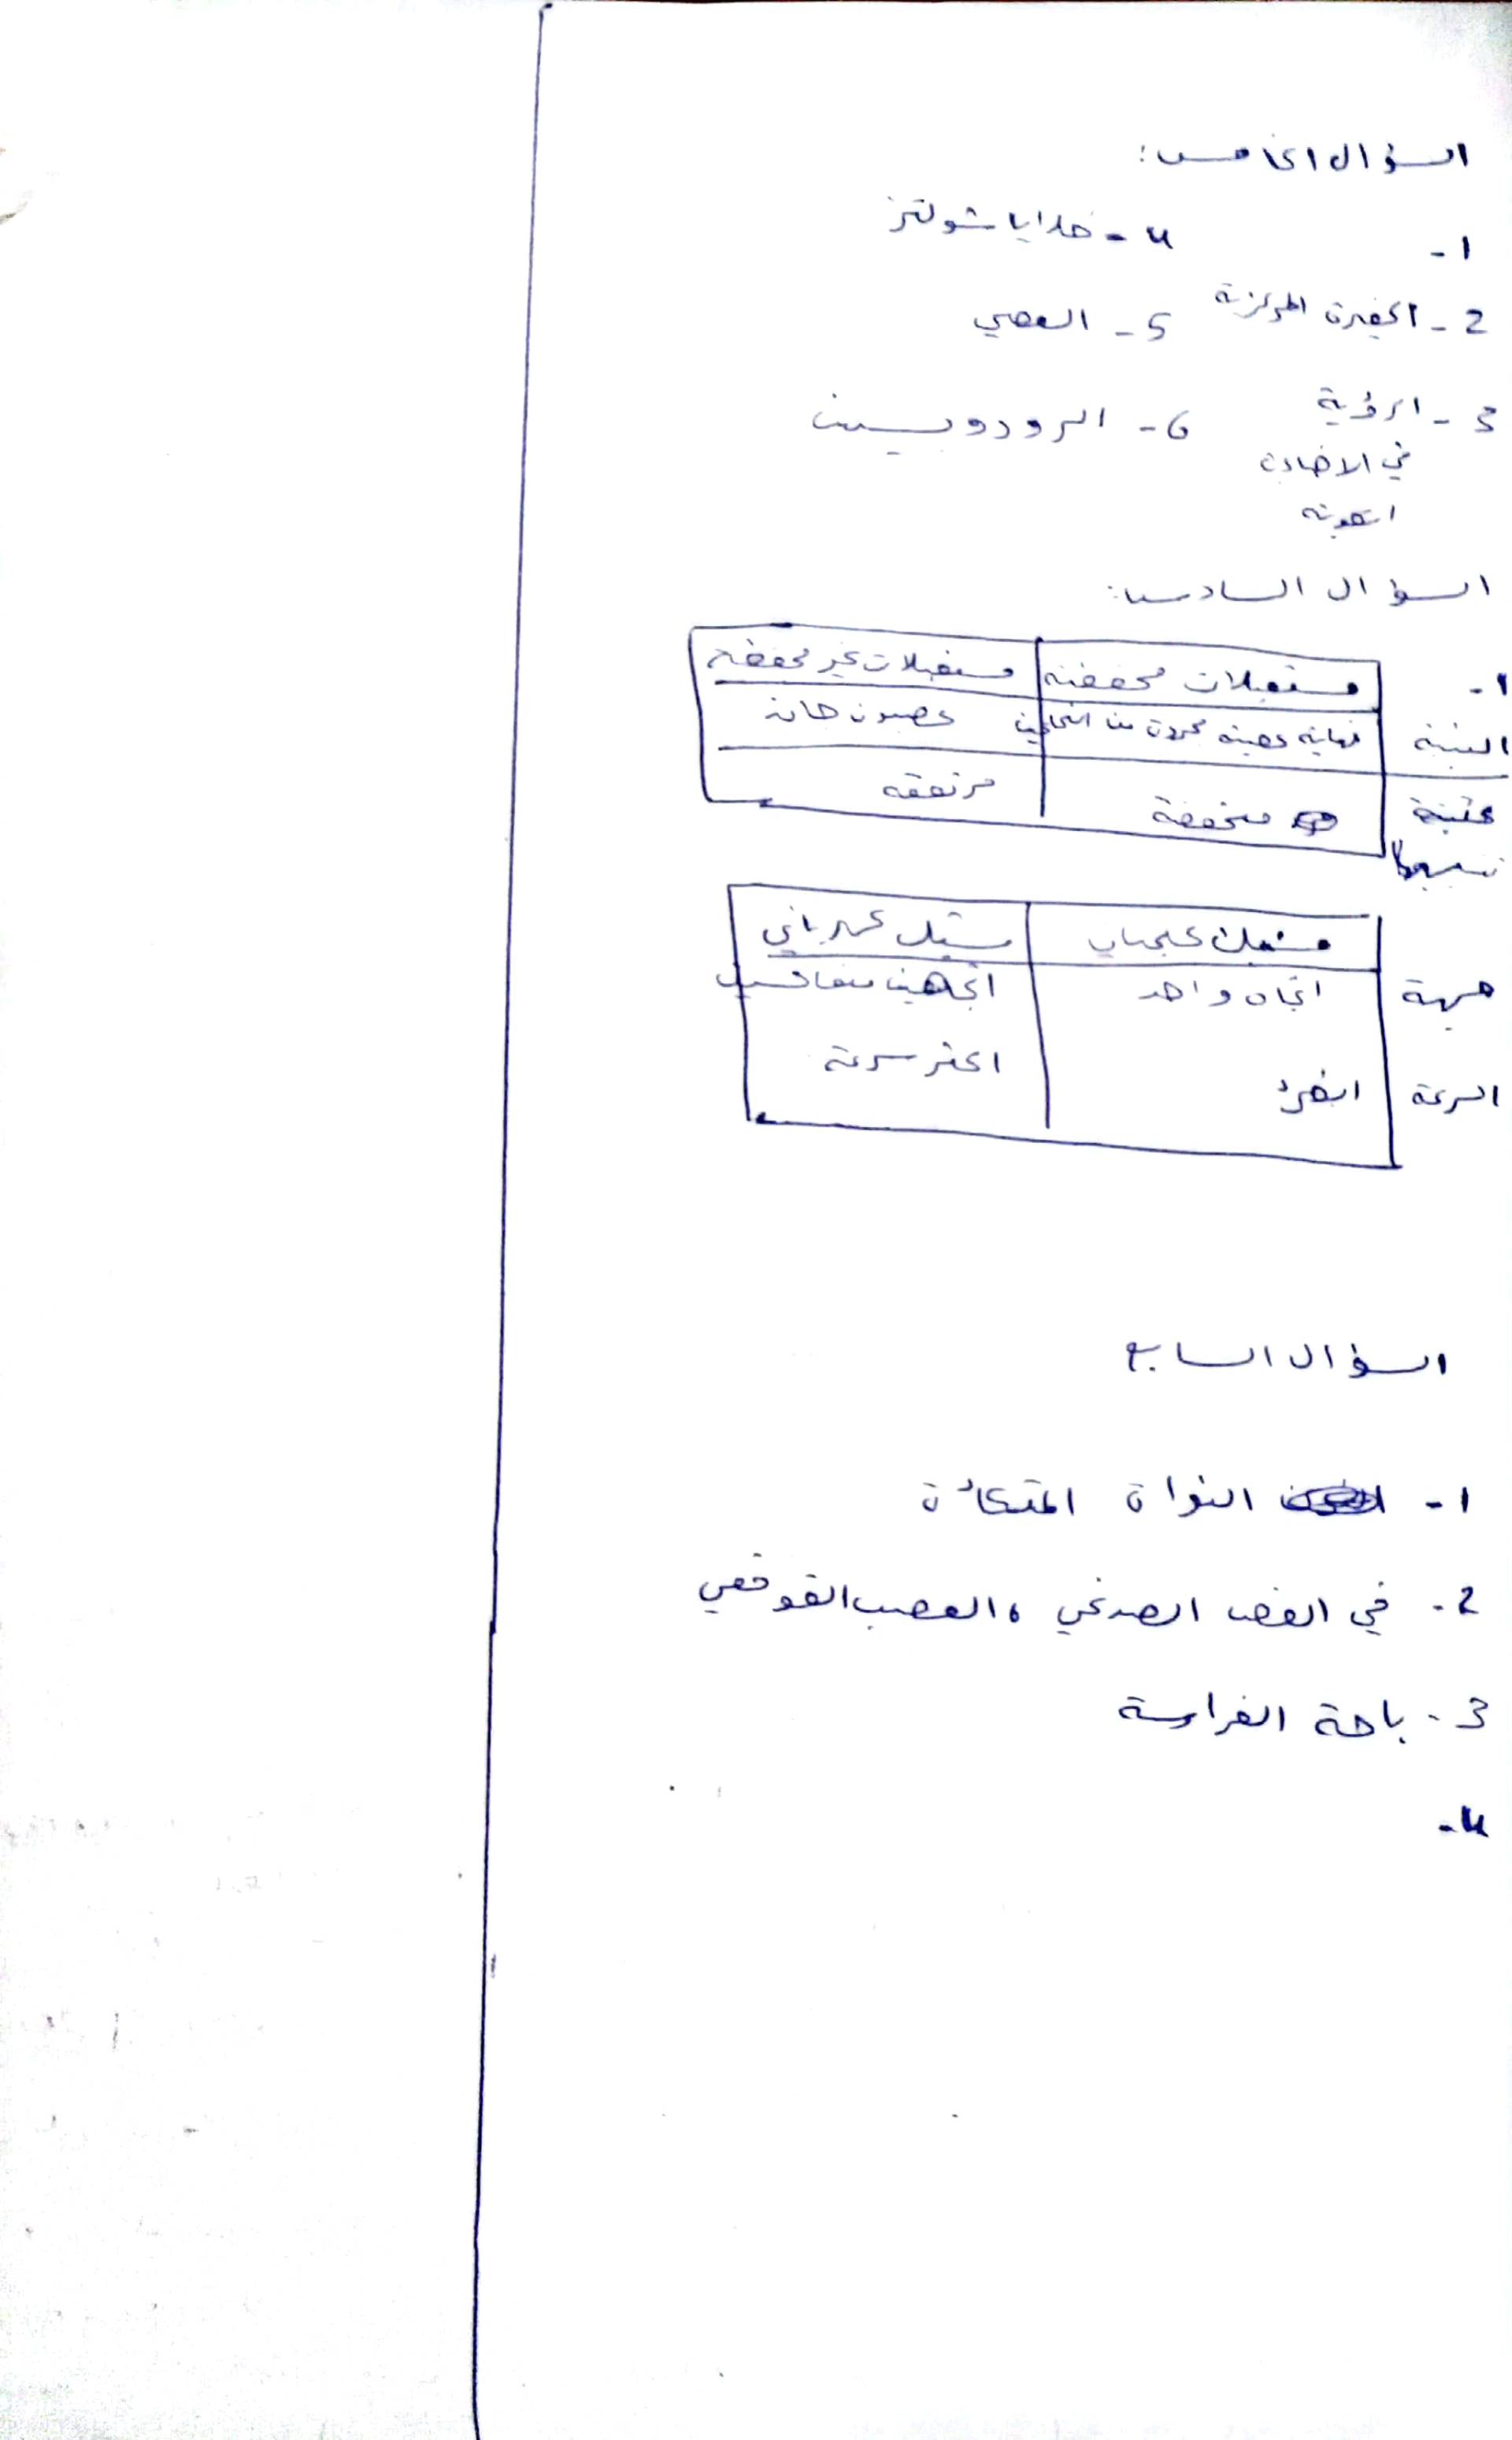 السؤال الخامس:
1-
4- خلايا شولتز
2- الحفيرة المركزية
5- العصي
3- الرؤية
في الاضاءة
6- الرودوبسين
السؤال السادس:
1-
مستقبلات محفظة
مستقبلات غير محفظة
البنية
نهاية عصبية مجردة من النخاعين
عصبون حسي
عتبة
تنبيهها
منخفضة
مرتفعة
مشبك كيميائي
مشبك كهربائي
جهة
اتجاه واحد
اتجاهين متعاكسين
السرعة
ابطئ
اكثر سرعة
السؤال السابع
1- النواة المتكئة
2- في الفص الصدغي، العصب القوقعي
3- باحة الفراسة
4-